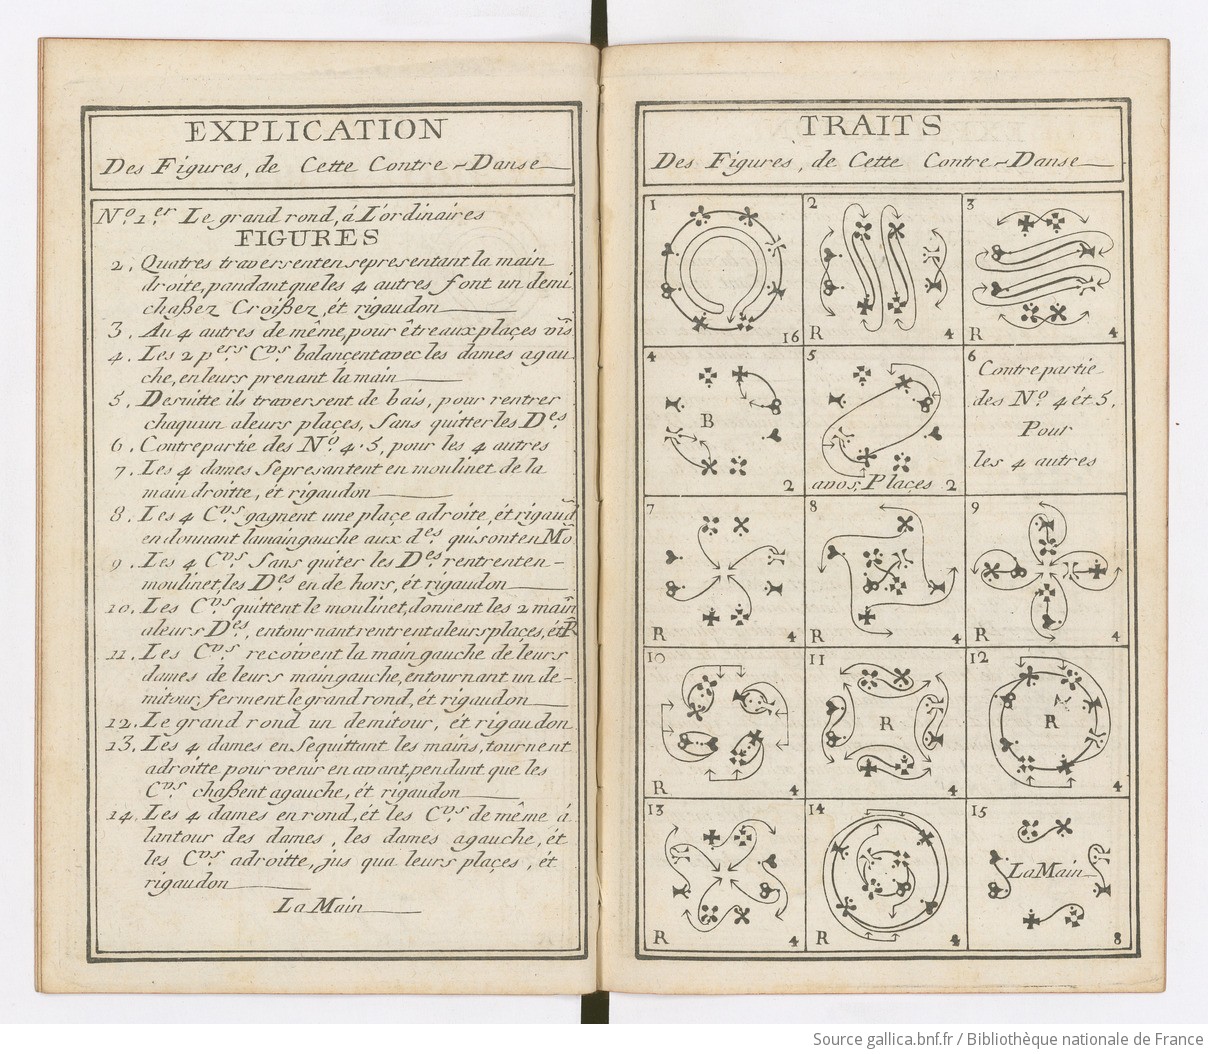 EXPLICATION
Des Figures, de Cette Contre-Danse
Nº.1.er Le grand rond, á L'ordinaires
FIGURES
2. Quatres traversent en se presentant la main
droite, pandant que les 4 autres font un demi
chaßez Croißez, ét rigaudon
3. Au 4 autres de même, pour être aux plaçes vis
4. Les 2 pers Cvs balancent avec les dames agau
che, en leurs prenant la main
5. Desuitte ils traversent de bais, pour rentrer
chaquun aleurs places, Sans quitter les Des
6. Contrepartie des Nº. 4.5, pour les 4 autres
7. Les 4 dames Se presantent en moulinet de la
main droitte, ét rigaudon
8. Les 4 Cvs gagnent une plaçe adroite, ét rigaud
en donnant la main gauche aux des qui sont en Mo
9. Les 4 Cvs Sans quiter les Des rentrent en-
moulinet, les Des en de hors, ét rigaudon
10. Les Cvs quittent le moulinet, donnent les 2 main
aleurs Des, en tournant rentrent aleurs plaçes, ét R
11. Les Cvs recoivent la main gauche de leurs
dames de leurs main gauche, en tournant un de-
mitour, ferment le grand rond, ét rigaudon
12. Le grand rond un demitour, ét rigaudon
13. Les 4 dames en Se quittant les mains, tournent
adroitte pour venir en avant, pendant que les
Cvs chaßent agauche, ét rigaudon
14. Les 4 dames en rond, ét les Cvs de même á
lantour des dames, les dames agauche, ét
les Cvs adroitte, jus qua leurs plaçes, ét
rigaudon
La Main
TRAITS
Des Figures, de Cette Contre-Danse
1
16
2
R 4
3
R 4
4
B
2
5
avos Places 2
6
Contre partie
des Nº. 4 ét 5.
Pour
les 4 autres
7
R 4
8
4
9
R 4
10
R 4
11
R
4
12
R
4
13
R 4
14
R 4
15
La Main
8
Source gallica.bnf.fr / Bibliothèque nationale de France